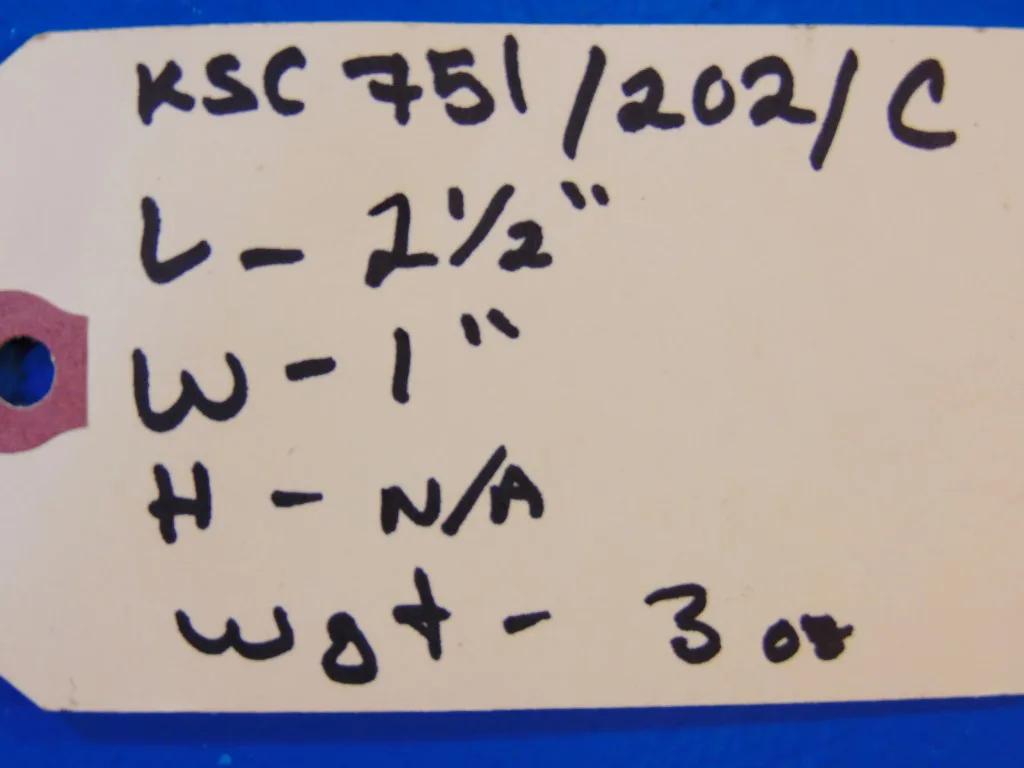 KSC 751/202/C
L - 2 1/2"
W - 1"
H - N/A
Wgt - 3 oz